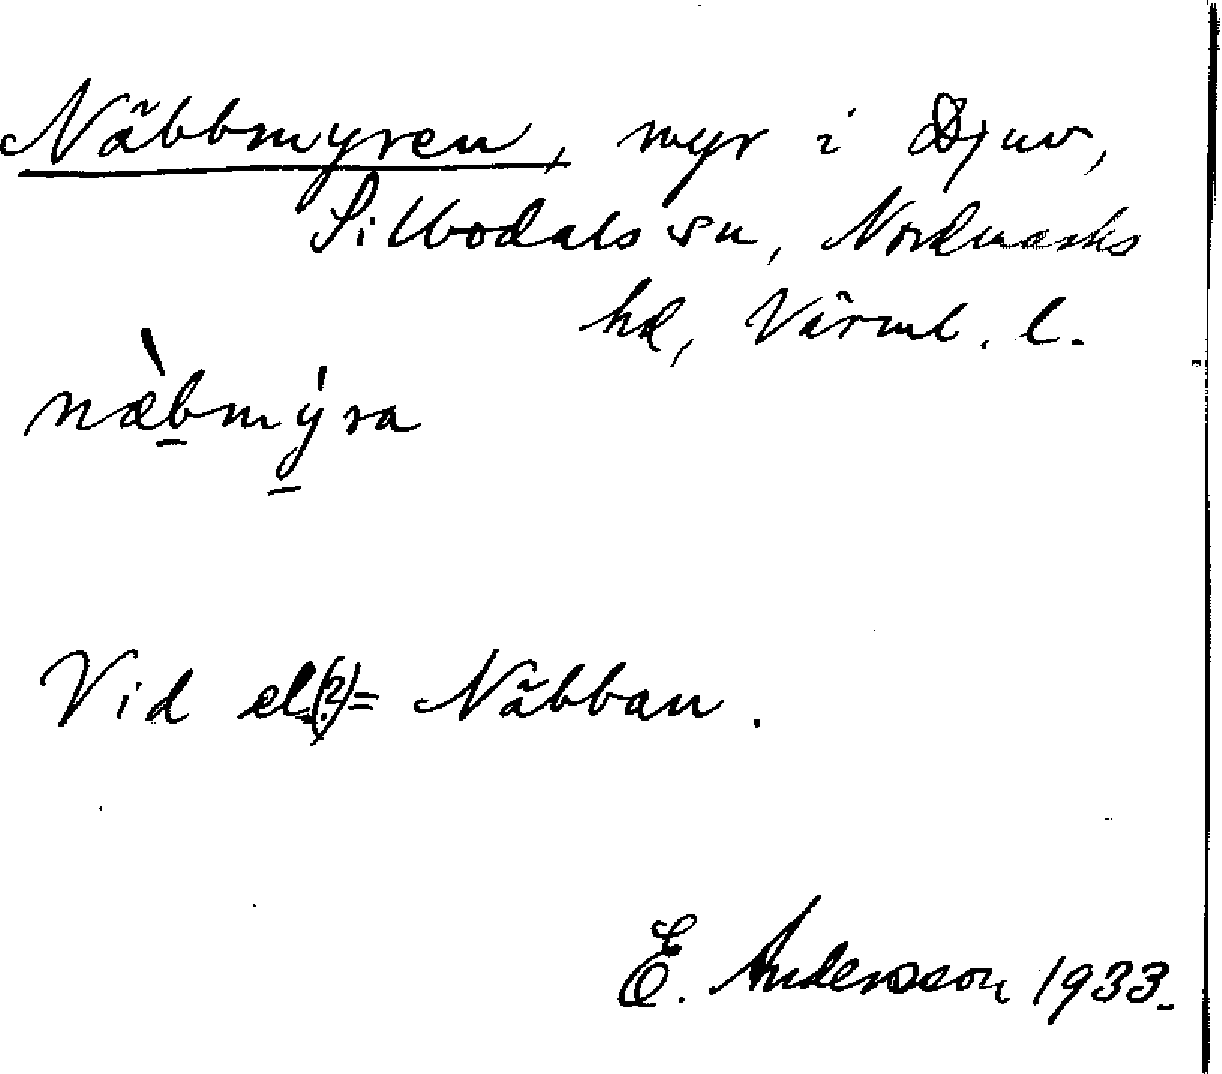 Näbbmyren, myr i Djuv,
Silbodals sn, Nordmarks
hd, Värml. l.
næ̀bmýra
Vid el.(?) = Näbban.
E. Andersson 1933.